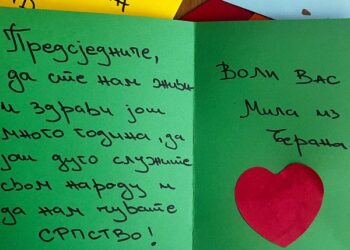 Предсједниче,
да сте нам живи
и здрави још
много година, да
још дуго служите
свом народу и
да нам чувате
СРПСТВО!
Воли Вас
Мила из
Ћерања